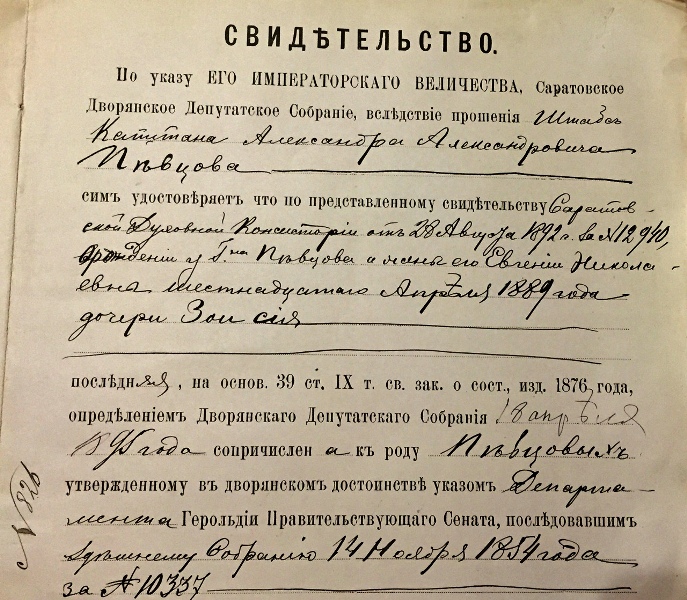 СВИДѢТЕЛЬСТВО.
По указу ЕГО ИМПЕРАТОРСКАГО ВЕЛИЧЕСТВА, Саратовское
Дворянское Депутатское Собраніе, вслѣдствіе прошенія Штабсъ
Капитана Александра Александровича
Пѣвцова
симъ удостовѣряетъ что по представленному свидѣтельству Саратов-
ской Духовной Консисторіи отъ 28 Августа 1892 г. за № 12940,
о рожденіи у Г-на Пѣвцова и жены его Евгеніи Никола-
евны шестнадцатаго Апрѣля 1889 года
дочери Зои сія
послѣдняя, на основ. 39 ст. IX т. св. зак. о сост., изд. 1876 года,
опредѣленіемъ Дворянскаго Депутатскаго Собранія 18 апрѣля
1895 года сопричислен а къ роду Пѣвцовыхъ
утвержденному въ дворянскомъ достоинствѣ указомъ Департа-
мента Герольдіи Правительствующаго Сената, послѣдовавшимъ
здѣшнему Собранію 14 Ноября 1854 года
за № 10337
№ 826